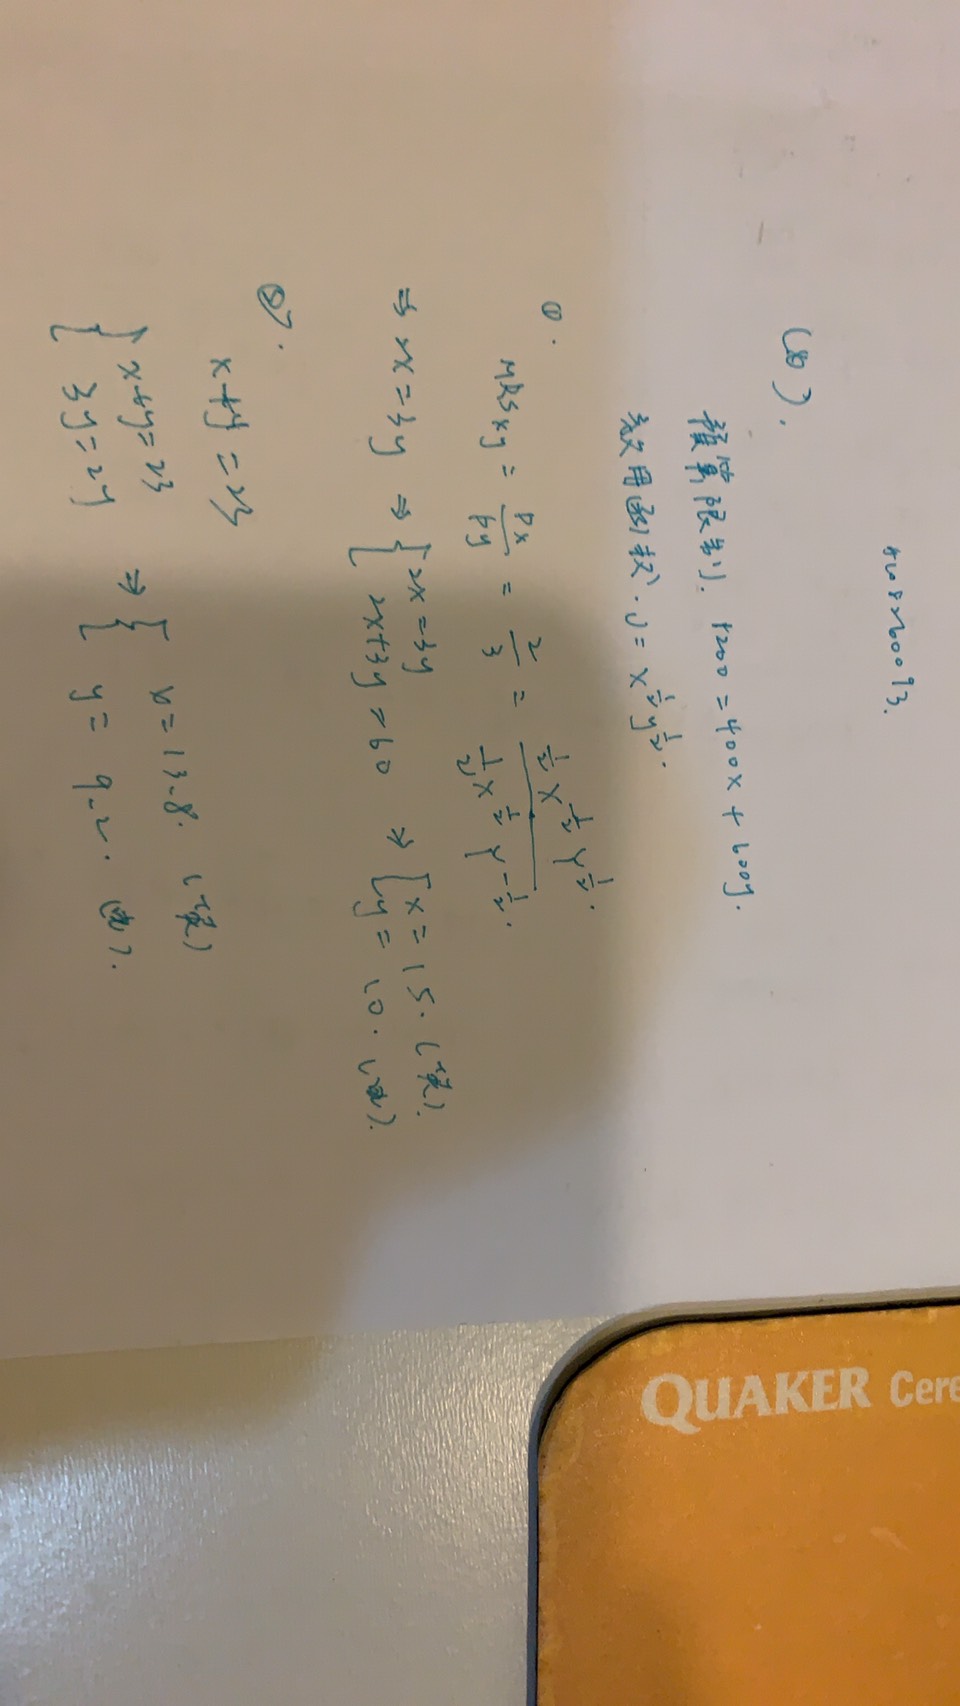 (四).
預算限制. 1200 = 400x + 600y.
效用函數. U = x^{1/2} y^{1/2}.
①. MRSxy = Px/Py = 2/3 = (1/2 x^{-1/2} y^{1/2}) / (1/2 x^{1/2} y^{-1/2}).
⇒ 2x = 3y ⇒ { 2x = 3y
2x+3y = 60 ⇒ { x = 15.
y = 10.
②.
x + y = 23
{ x+y = 23
3y = 2y ⇒ { x = 13.8.
y = 9.2.
QUAKER Cere